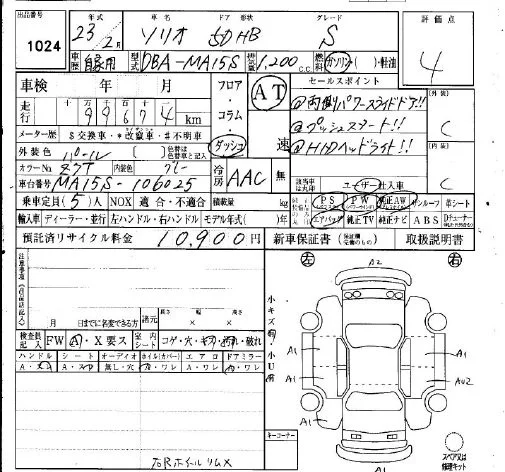 出品番号 1024
年式 23年 2月
車名 ソリオ
ドア 形状 5D HB
グレード S
評価点 4
車歴 自家用
型式 DBA-MA15S
排気量 1,200 c.c.
燃料 ガソリン・軽油
車検 年 月
走行 十万 9万 9千 6百 7十 4 km
メーター歴 $交換車・*改竄車・#不明車
外装色 パール
色替は色替車と記入
カラーNo Z7T
内装色 グレー
車台番号 MA15S-106025
フロア・コラム・ダッシュ
AT
速
冷房 AAC
無
セールスポイント
@両側パワースライドドア!!
@プッシュスタート!!
@HIDヘッドライト!!
外装 C
内装 C
該当車は丸印
ユーザー仕入車
乗車定員(5)人 NOX 適合・不適合 積載量 kg
PS PW 純正AW サンルーフ 本シート
輸入車 ディーラー・並行 左ハンドル・右ハンドル モデル年式( )年
エアバッグ 純正TV 純正ナビ ABS
預託済リサイクル料金 10,900円
新車保証書 取扱説明書
注意事項
月 日までに名変できる方
諸元 長さ 幅 高さ
検査員記入 FW A・X要ス 室内シート コゲ・穴・キズ・汚れ・破れ
ハンドル シート オーディオ ホイル(カバー) エアロ ドアミラー
左 右
小キズ有・小U有
A2
A1 A1
A1 AU2
A1 A1
キーコーナー
スペア又は修理キット